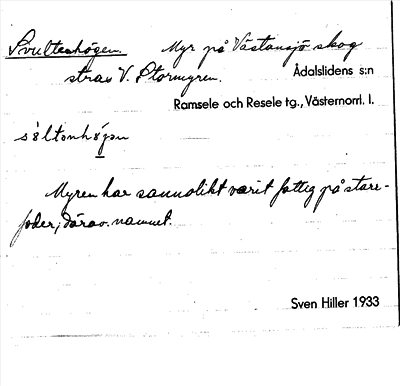 Svultenhögen. Myr på Västansjö skog
strax V. Stormyren.
Ådalslidens s:n
Ramsele och Resele tg., Västernorrl. l.
såltnhögen
Myren har sannolikt varit fattig på stare-
foder, därav namnet.
Sven Hiller 1933